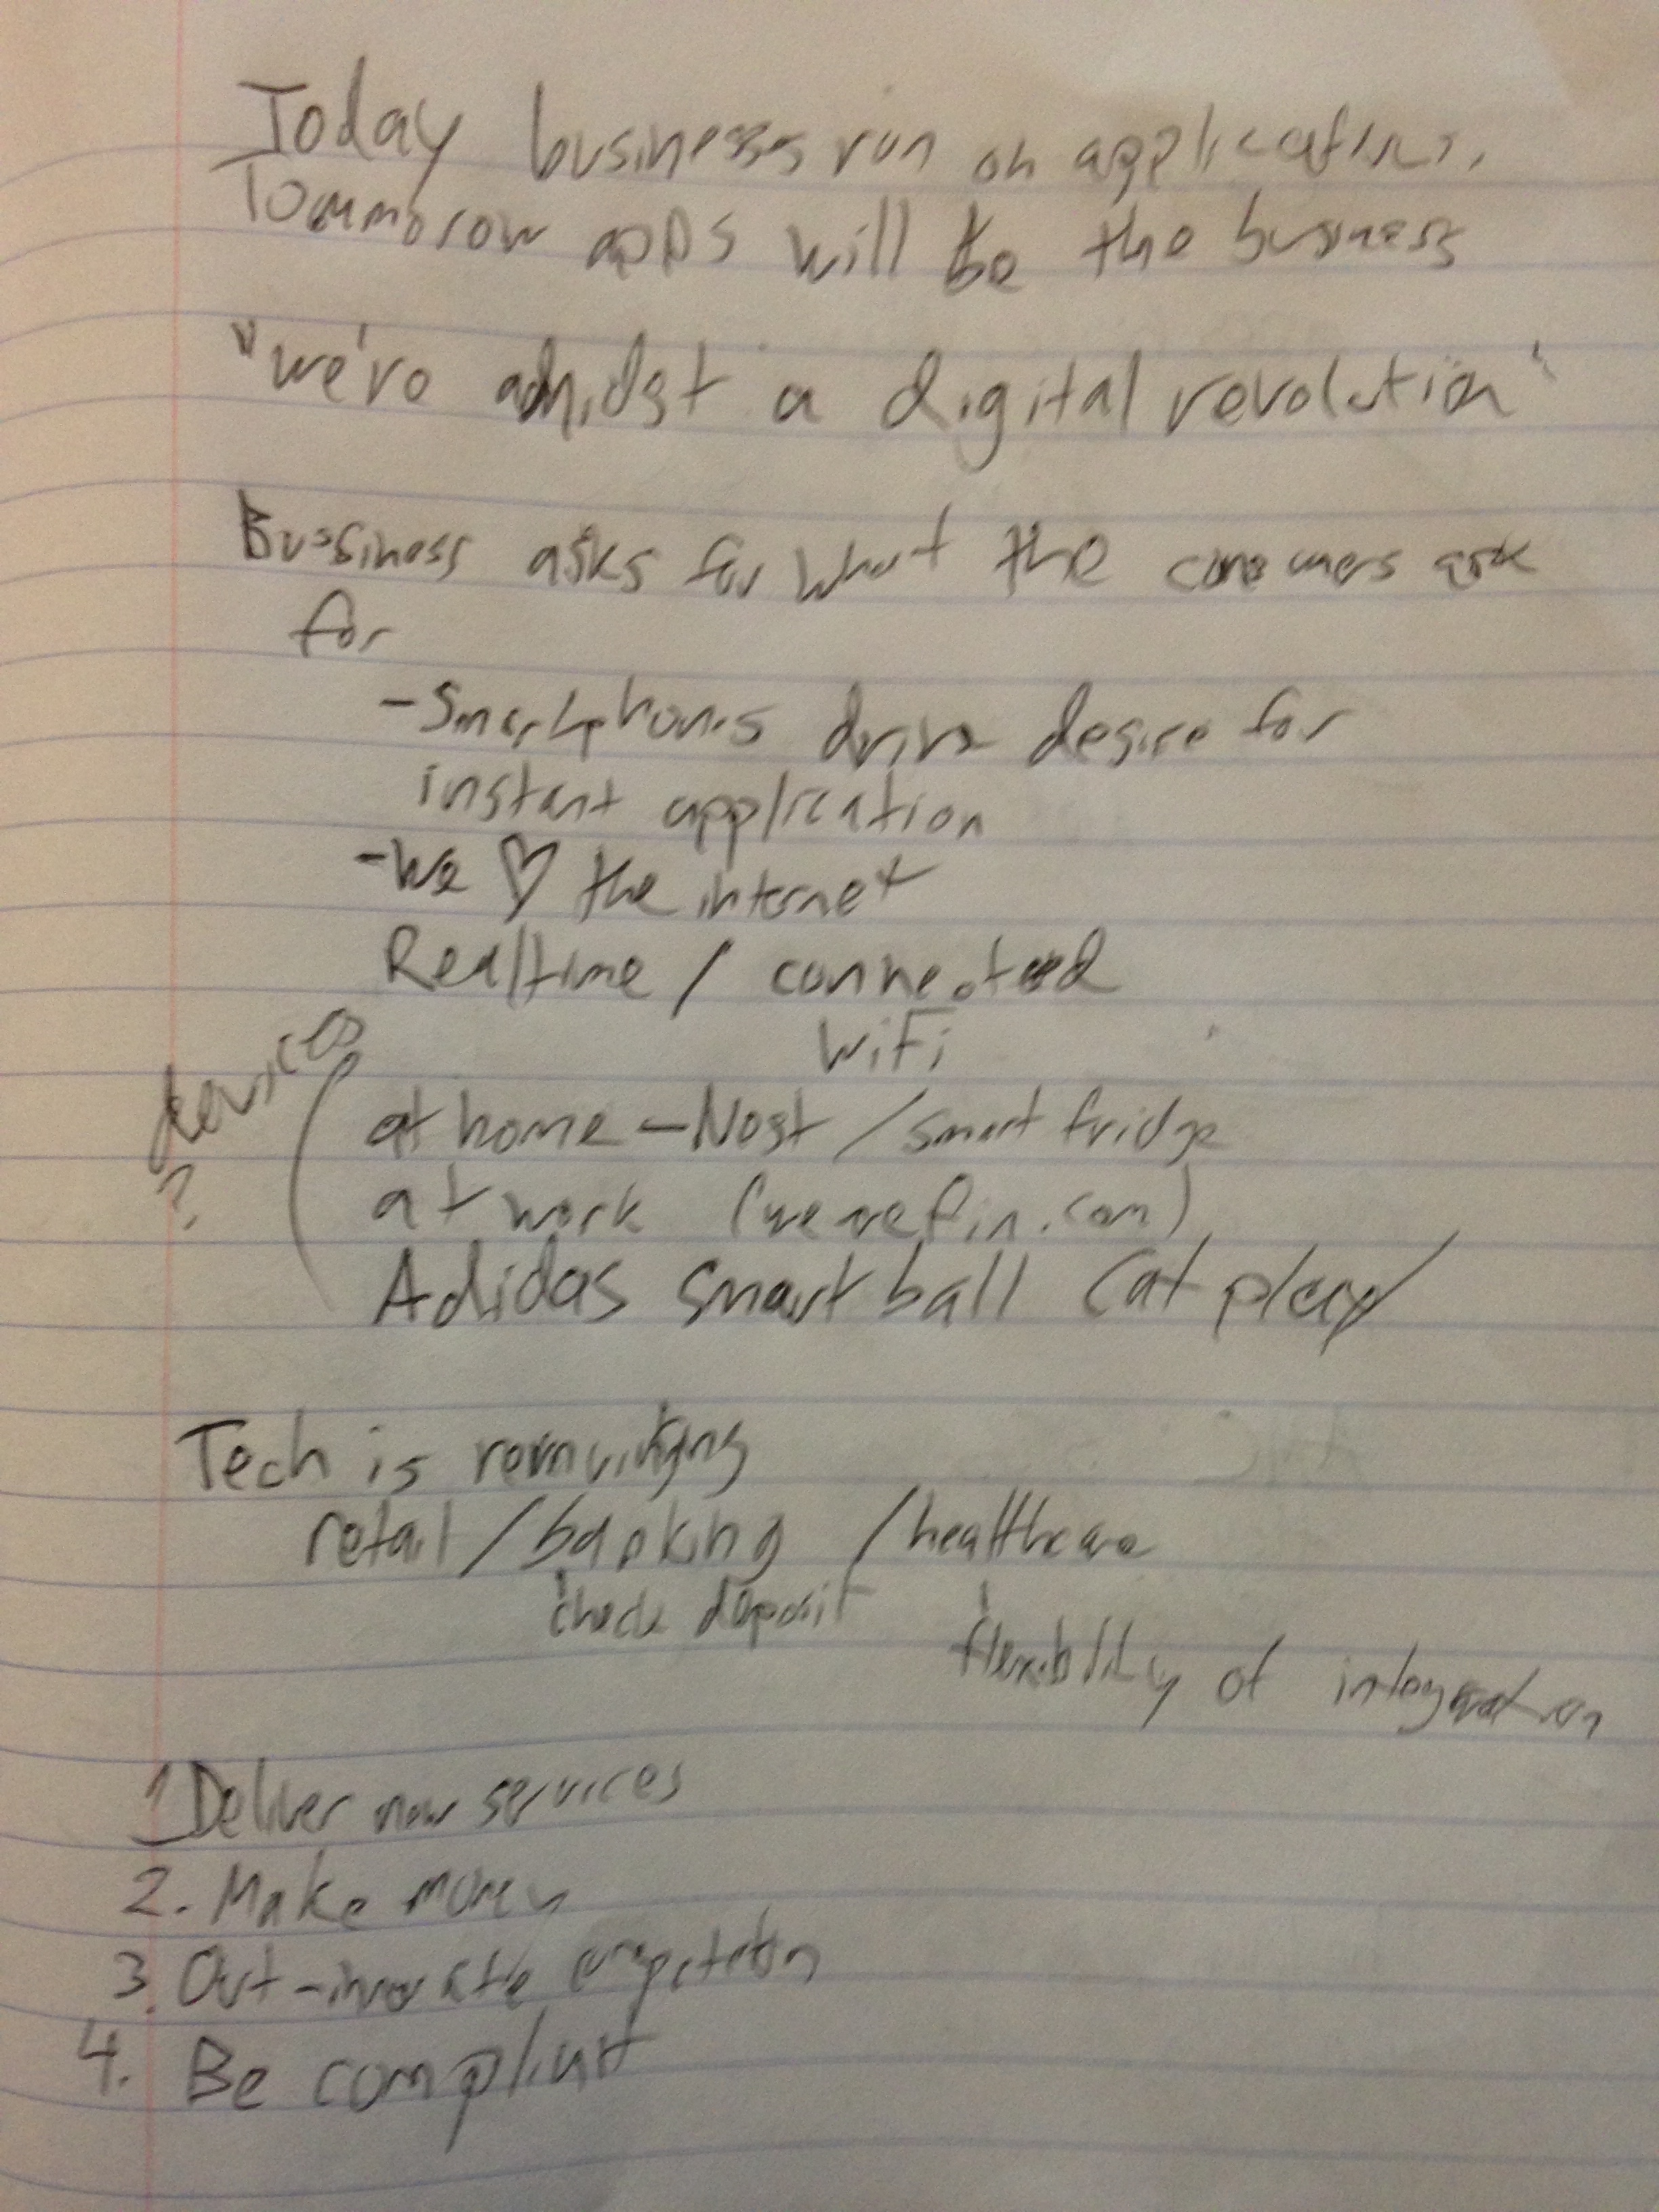 Today businesses run on applications.
Tommorow apps will be the business
"we're amidst a digital revolution"
Bussiness asks for what the consumers ask
for
-Smartphones drive desire for
instant application
-We ♡ the internet
Realtime / connected
WiFi
devices
?
at home - Nest / smart fridge
at work (werefin.com)
Adidas smart ball (at play)
Tech is
retail / banking / healthcare
check deposit
flexibility of integration
1 Deliver new services
2. Make money
3. Out-innovate competition
4. Be compliant